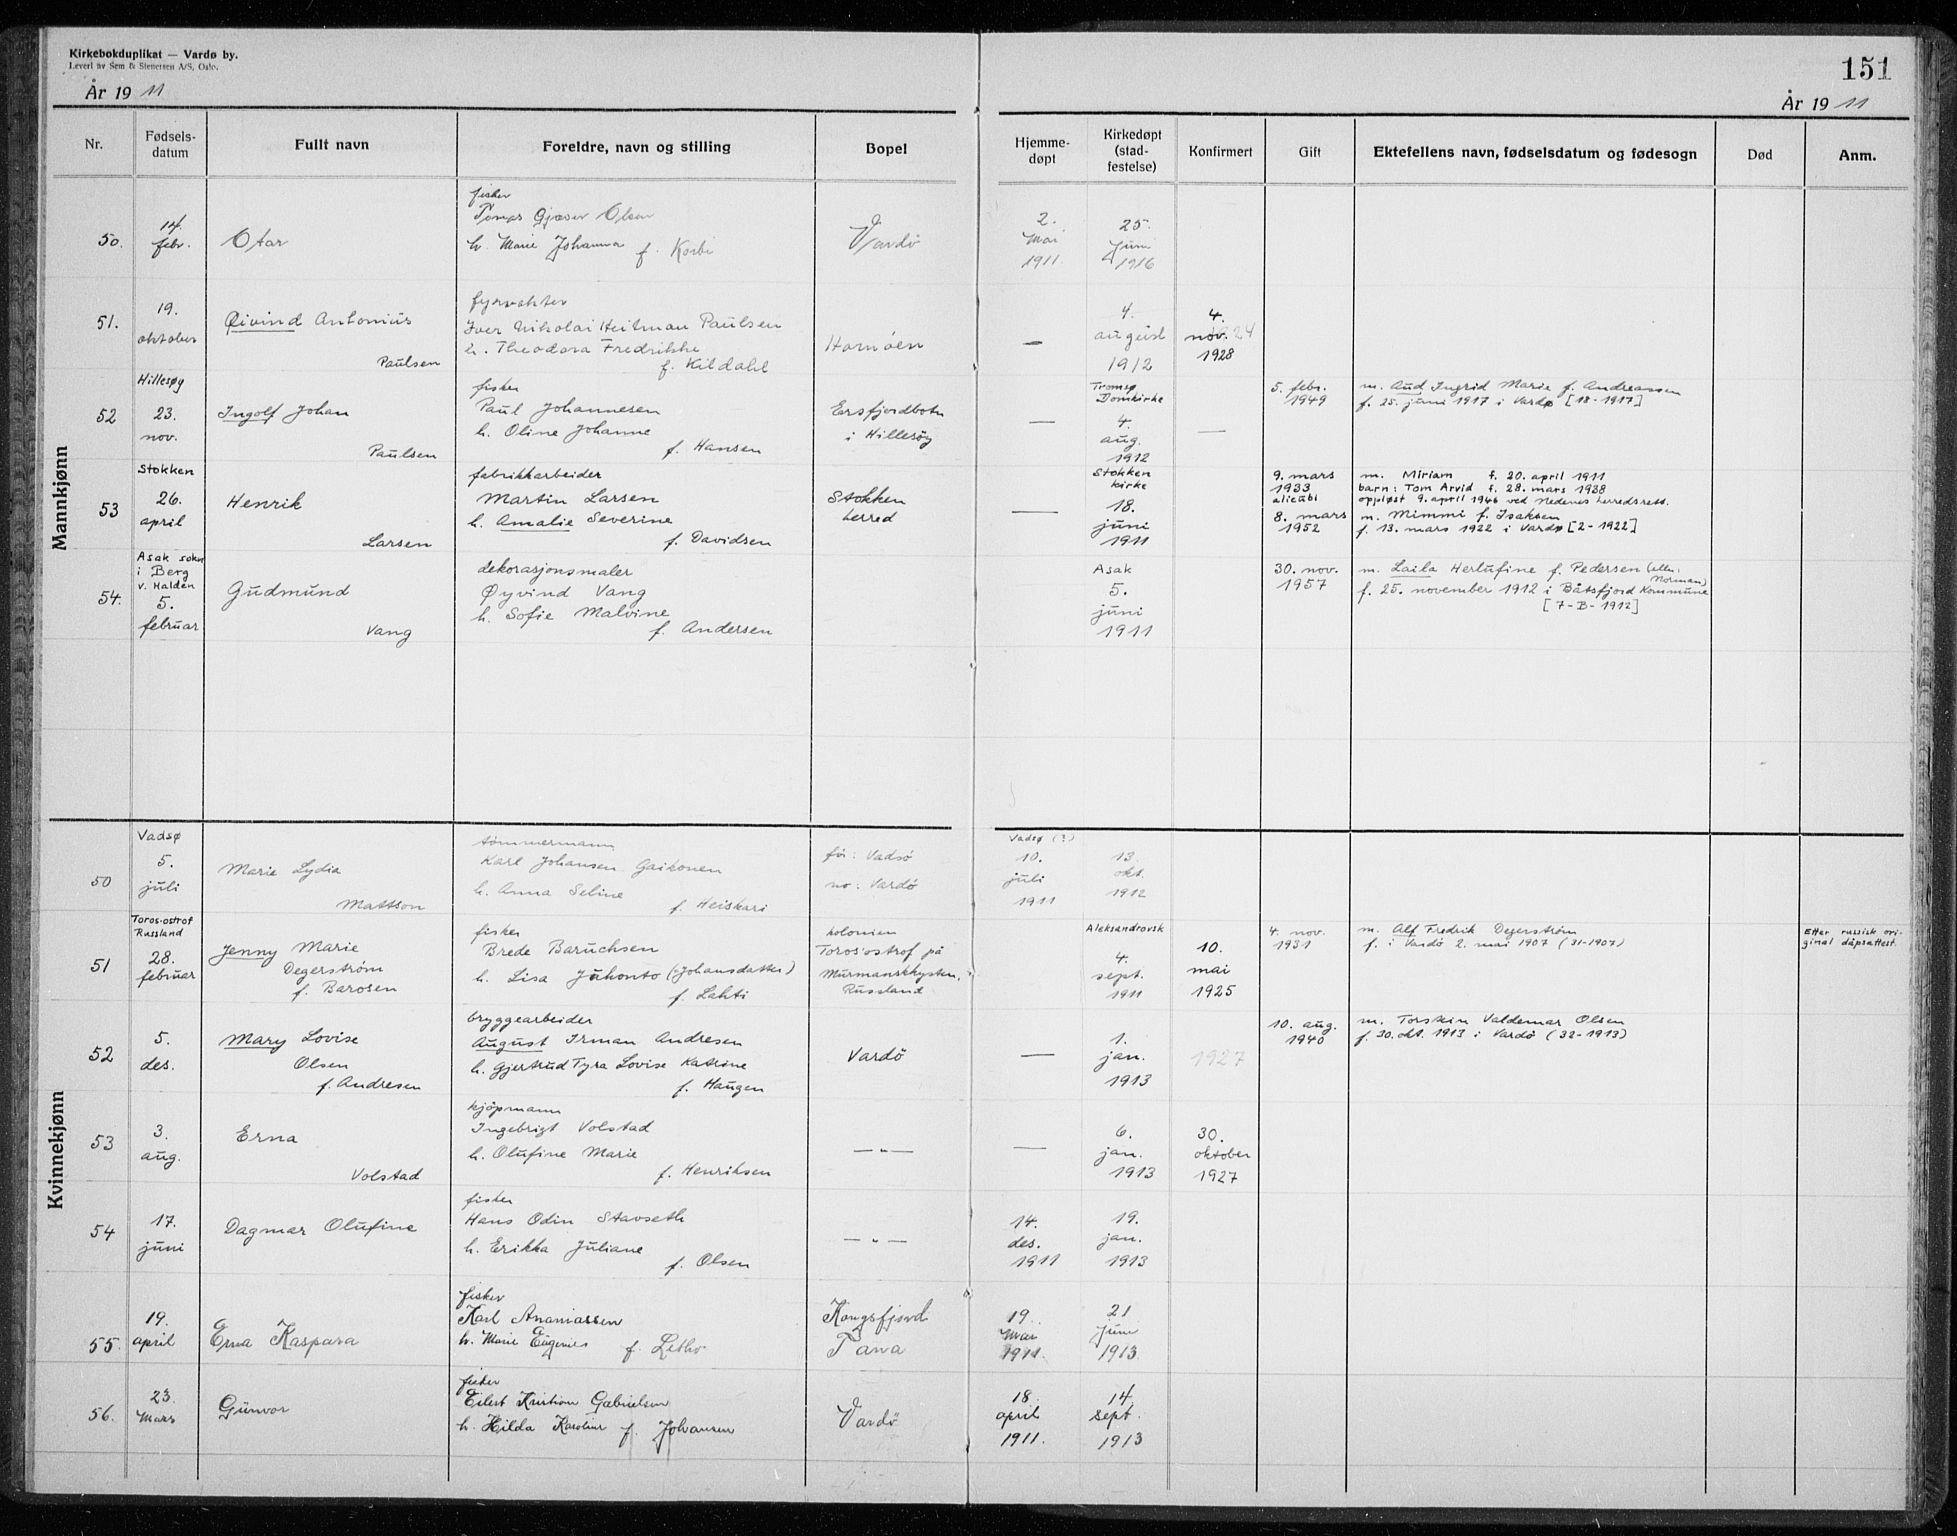 Kirkebokduplikat — Vardø by.
Levert av Sem & Stenersen A/S, Oslo.
151
År 19 11
År 19 11
Nr.
Fødsels-
datum
Fullt navn
Foreldre, navn og stilling
Bopel
Hjemme-
døpt
Kirkedøpt
(stad-
festelse)
Konfirmert
Gift
Ektefellens navn, fødselsdatum og fødesogn
Død
Anm.
Mannkjønn
50.
14.
febr.
Otar
fisker
Tomas Gjæver Olsen
h. Marie Johanna f. Korbi
Vardö
2.
Mai
1911.
25.
Juni
1916
51.
19.
oktober
Øivind Antonius
Paulsen
fyrvokter
Iver Nikolai Heitman Paulsen
h. Theodora Fredrikke
f. Kildahl
Hornöen
—
4.
august
1912
4.
nov. 24
1928
52
Hillesøy
23.
nov.
Ingolf Johan
Paulsen
fisker
Paul Johannesen
h. Oline Johanne
f. Hansen
Ersfjordbotn
i Hillesöy
—
Tromsø
Domkirke
4.
aug.
1912
—
5. febr.
1949
m. Aud Ingrid Marie f. Andreassen
f. 25. juni 1917 i Vardø [18-1917]
53
Stokken
26.
april
Henrik
Larsen
fabrikkarbeider
Martin Larsen
h. Amalie Severine
f. Davidsen
Stokken
herred
—
Stokken
kirke
18.
juni
1911
9. mars
1933
alicubi
8. mars
1952
m. Miriam f. 20. april 1911
barn: Tom Arvid f. 28. mars 1938
oppløst 9. april 1946 ved Nedenes herredsrett.
m. Mimmi f. Isaksen
f. 13. mars 1922 i Vardø [2-1922]
54.
Asak sokn
i Berg
v. Halden
5.
februar
Gudmund
Vang
dekorasjonsmaler
Øyvind Vang
h. Sofie Malvine
f. Andersen
Asak
5.
juni
1911
30. nov.
1957
m. Laila Herlufine f. Pedersen (ellen:
Norman)
f. 25. november 1912 i Båtsfjord kommune
[7-B-1912]
Kvinnekjønn
50
Vadsø
5.
juli
Marie Lydia
Mattson
tömmermann
Karl Johansen Gaikonen
h. Anna Seline
f. Heiskari
för: Vadsö
no: Vardö
Vadsø (?)
10.
juli
1911
13.
okt.
1912
51
Toros-ostrof
Russland
28.
februar
Jenny Marie
Degerström
f. Barosen
fisker
Brede Baruchsen
h. Lisa Juhonto (Johansdatter)
f. Lahti
kolonien
Toros'ostrof på
Murmanskkysten.
Russland
Aleksandrovsk
4.
sept.
1911
10.
mai
1925
4. nov.
1931
m. Alf Fredrik Degerstrøm
f. i Vardö 2. mai 1907 (31-1907)
Etter russisk ori-
ginal dåpsattest.
52
5.
des.
Mary Lovise
Olsen
f. Andresen
bryggearbeider
August Irman Andresen
h. Gjertrud Tyra Lovise Katrine
f. Haugen
Vardö
—
1.
jan.
1913
1927
10. aug.
1940
m. Torstein Valdemar Olsen
f. 30. okt. 1913 i Vardö (32-1913)
53
3.
aug.
Erna
Volstad
kjöpmann
Ingebrigt Volstad
h. Olufine Marie
f. Henriksen
—"—
—
6.
jan.
1913
30.
oktober
1927
54
17.
juni
Dagmar Olufine
fisker
Hans Odin Stavseth
h. Erikka Juliane
f. Olsen
—"—
14.
des.
1911
19.
jan.
1913
55.
19.
april
Erna Kaspara
fisker
Karl Ananiassen
h. Marie Eugenies f. Letho
Kongsfjord
Tana
19.
Mai
1911.
21
Juni
1913
56.
23.
Mars
Gunvor
fisker
Eilert Kristian Gabrielsen
h. Hilda Karoline f. Johansen
Vardö
18.
april
1911.
14.
sept.
1913